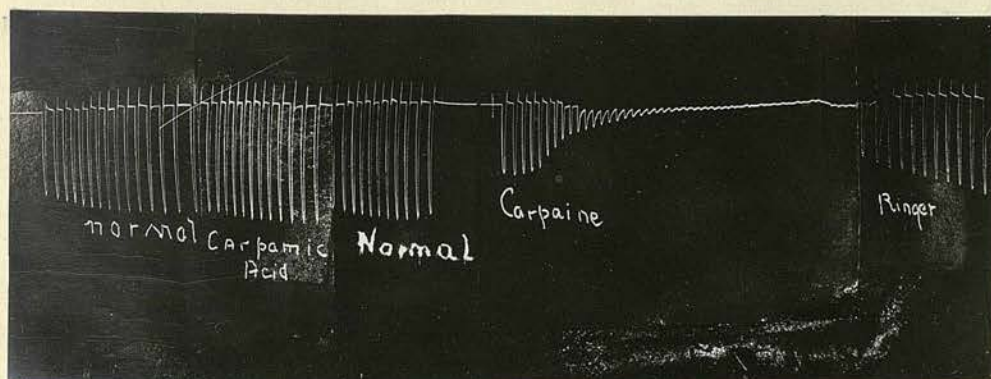 normal
Carpamic
Acid
Normal
Carpaine
Ringer